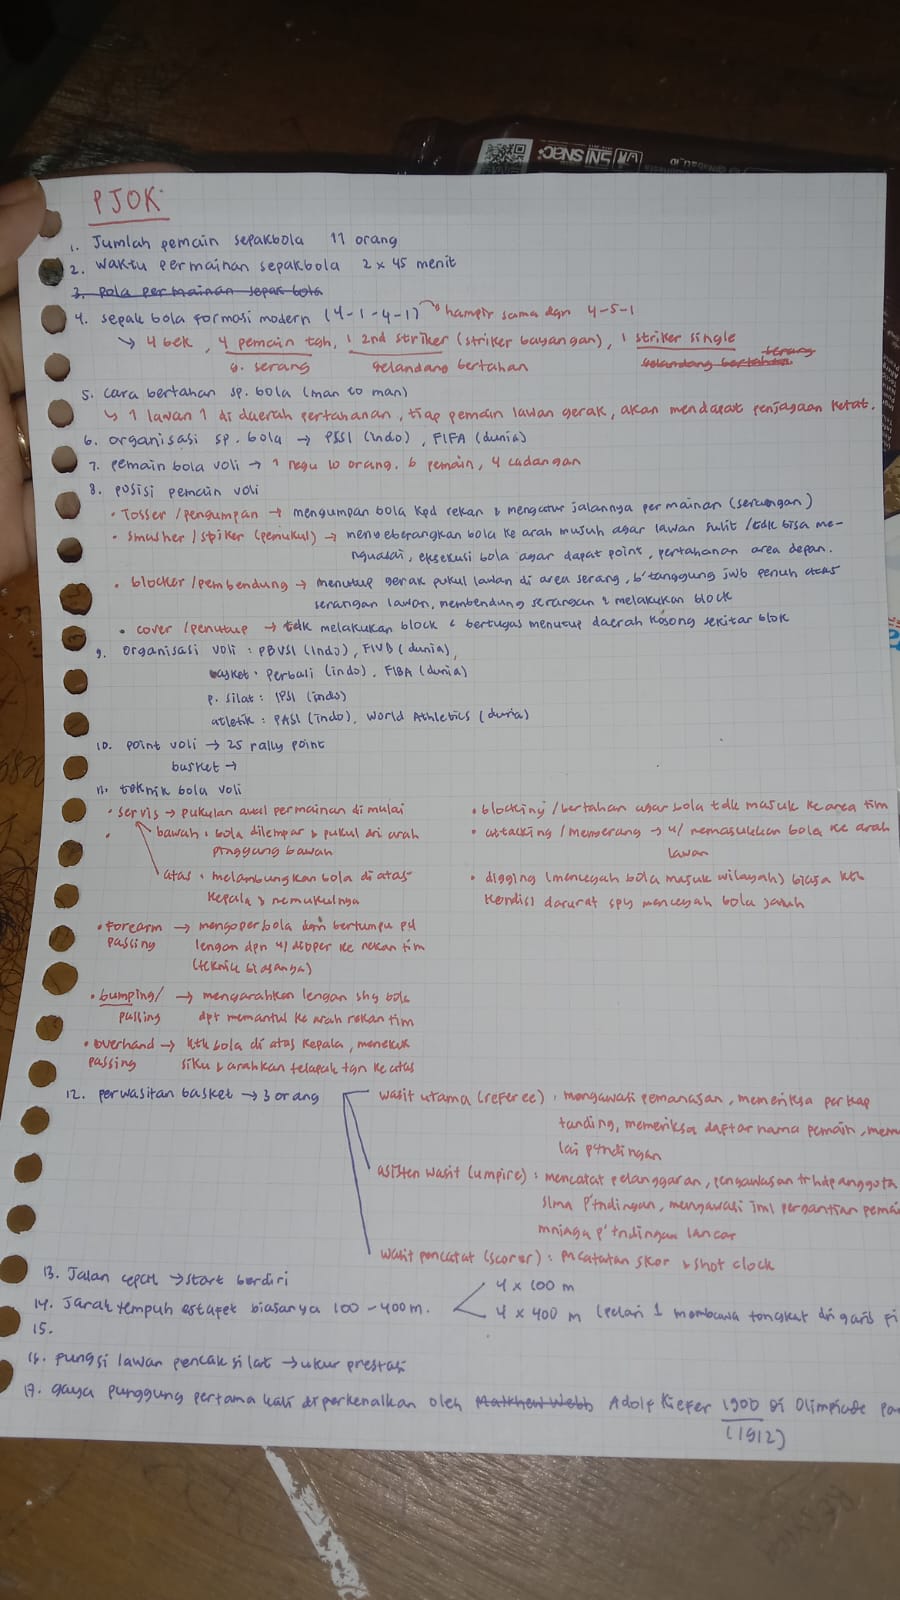 PJOK
1. Jumlah pemain sepakbola 11 orang
2. waktu permainan sepakbola 2 x 45 menit
3. pola permainan sepak bola
4. sepak bola formasi modern (4-1-4-1) → hampir sama dgn 4-5-1
↳ 4 bek, 4 pemain tgh, 1 2nd striker (striker bayangan), 1 striker single
g. serang gelandang bertahan gelandang bertahan serang
5. cara bertahan sp. bola (man to man)
↳ 1 lawan 1 di daerah pertahanan, tiap pemain lawan gerak, akan mendapat penjagaan ketat.
6. organisasi sp. bola → PSSI (indo), FIFA (dunia)
7. pemain bola voli → 1 regu 10 orang. 6 pemain, 4 cadangan
8. posisi pemain voli
• Tosser /pengumpan → mengumpan bola kpd rekan & mengatur jalannya permainan (serangan)
• smasher / spiker (pemukul) → menyeberangkan bola ke arah musuh agar lawan sulit / tdk bisa me-
nguasai, eksekusi bola agar dapat point, pertahanan area depan.
• blocker /pembendung → menutup gerak pukul lawan di area serang, b'tanggung jwb penuh atas
serangan lawan, membendung serangan & melakukan block
• cover /penutup → tdk melakukan block & bertugas menutup daerah kosong sekitar blok
9. organisasi voli : PBVSI (indo), FIVB (dunia)
basket : Perbasi (indo), FIBA (dunia)
p. silat : IPSI (indo)
atletik : PASI (indo), World Athletics (dunia)
10. point voli → 25 rally point
basket →
11. teknik bola voli
• servis → pukulan awal permainan di mulai
bawah : bola dilempar & pukul dri arah
pinggung bawah
atas : melambungkan bola di atas
kepala & memukulnya
• forearm passing → mengoper bola dgn bertumpu pd
lengan dpn u/ dioper ke rekan tim
(teknik biasanya)
• bumping/ passing → mengarahkan lengan shg bola
dpt memantul ke arah rekan tim
• overhand passing → ktk bola di atas kepala, menekuk
siku & arahkan telapak tgn ke atas
• blocking /bertahan agar bola tdk masuk ke area tim
• attacking / menyerang → u/ memasukkan bola ke arah
lawan
• digging (mencegah bola masuk wilayah) biasa
kondisi darurat spy mencegah bola jatuh
12. perwasitan basket → 3 orang
wasit utama (referee) : mengawasi pemanasan, memeriksa
tanding, memeriksa daftar nama pemain,
lai p'tndingan
asisten wasit (umpire) : mencatat pelanggaran, pengawasan trhdp anggota
slma p'tndingan, mengawasi jml pergantian
mnjaga p'tndingan lancar
wasit pencatat (scorer) : pncatatan skor & shot clock
13. Jalan cepat → start berdiri
14. Jarak tempuh estafet biasanya 100 - 400 m.
4 x 100 m
4 x 400 m (pelari 1 membawa tongkat dri garis
15.
16. fungsi lawan pencak silat → ukur prestasi
17. gaya punggung pertama kali diperkenalkan oleh Matthew Webb Adolf Kiefer 1900 di Olimpiade
(1912)